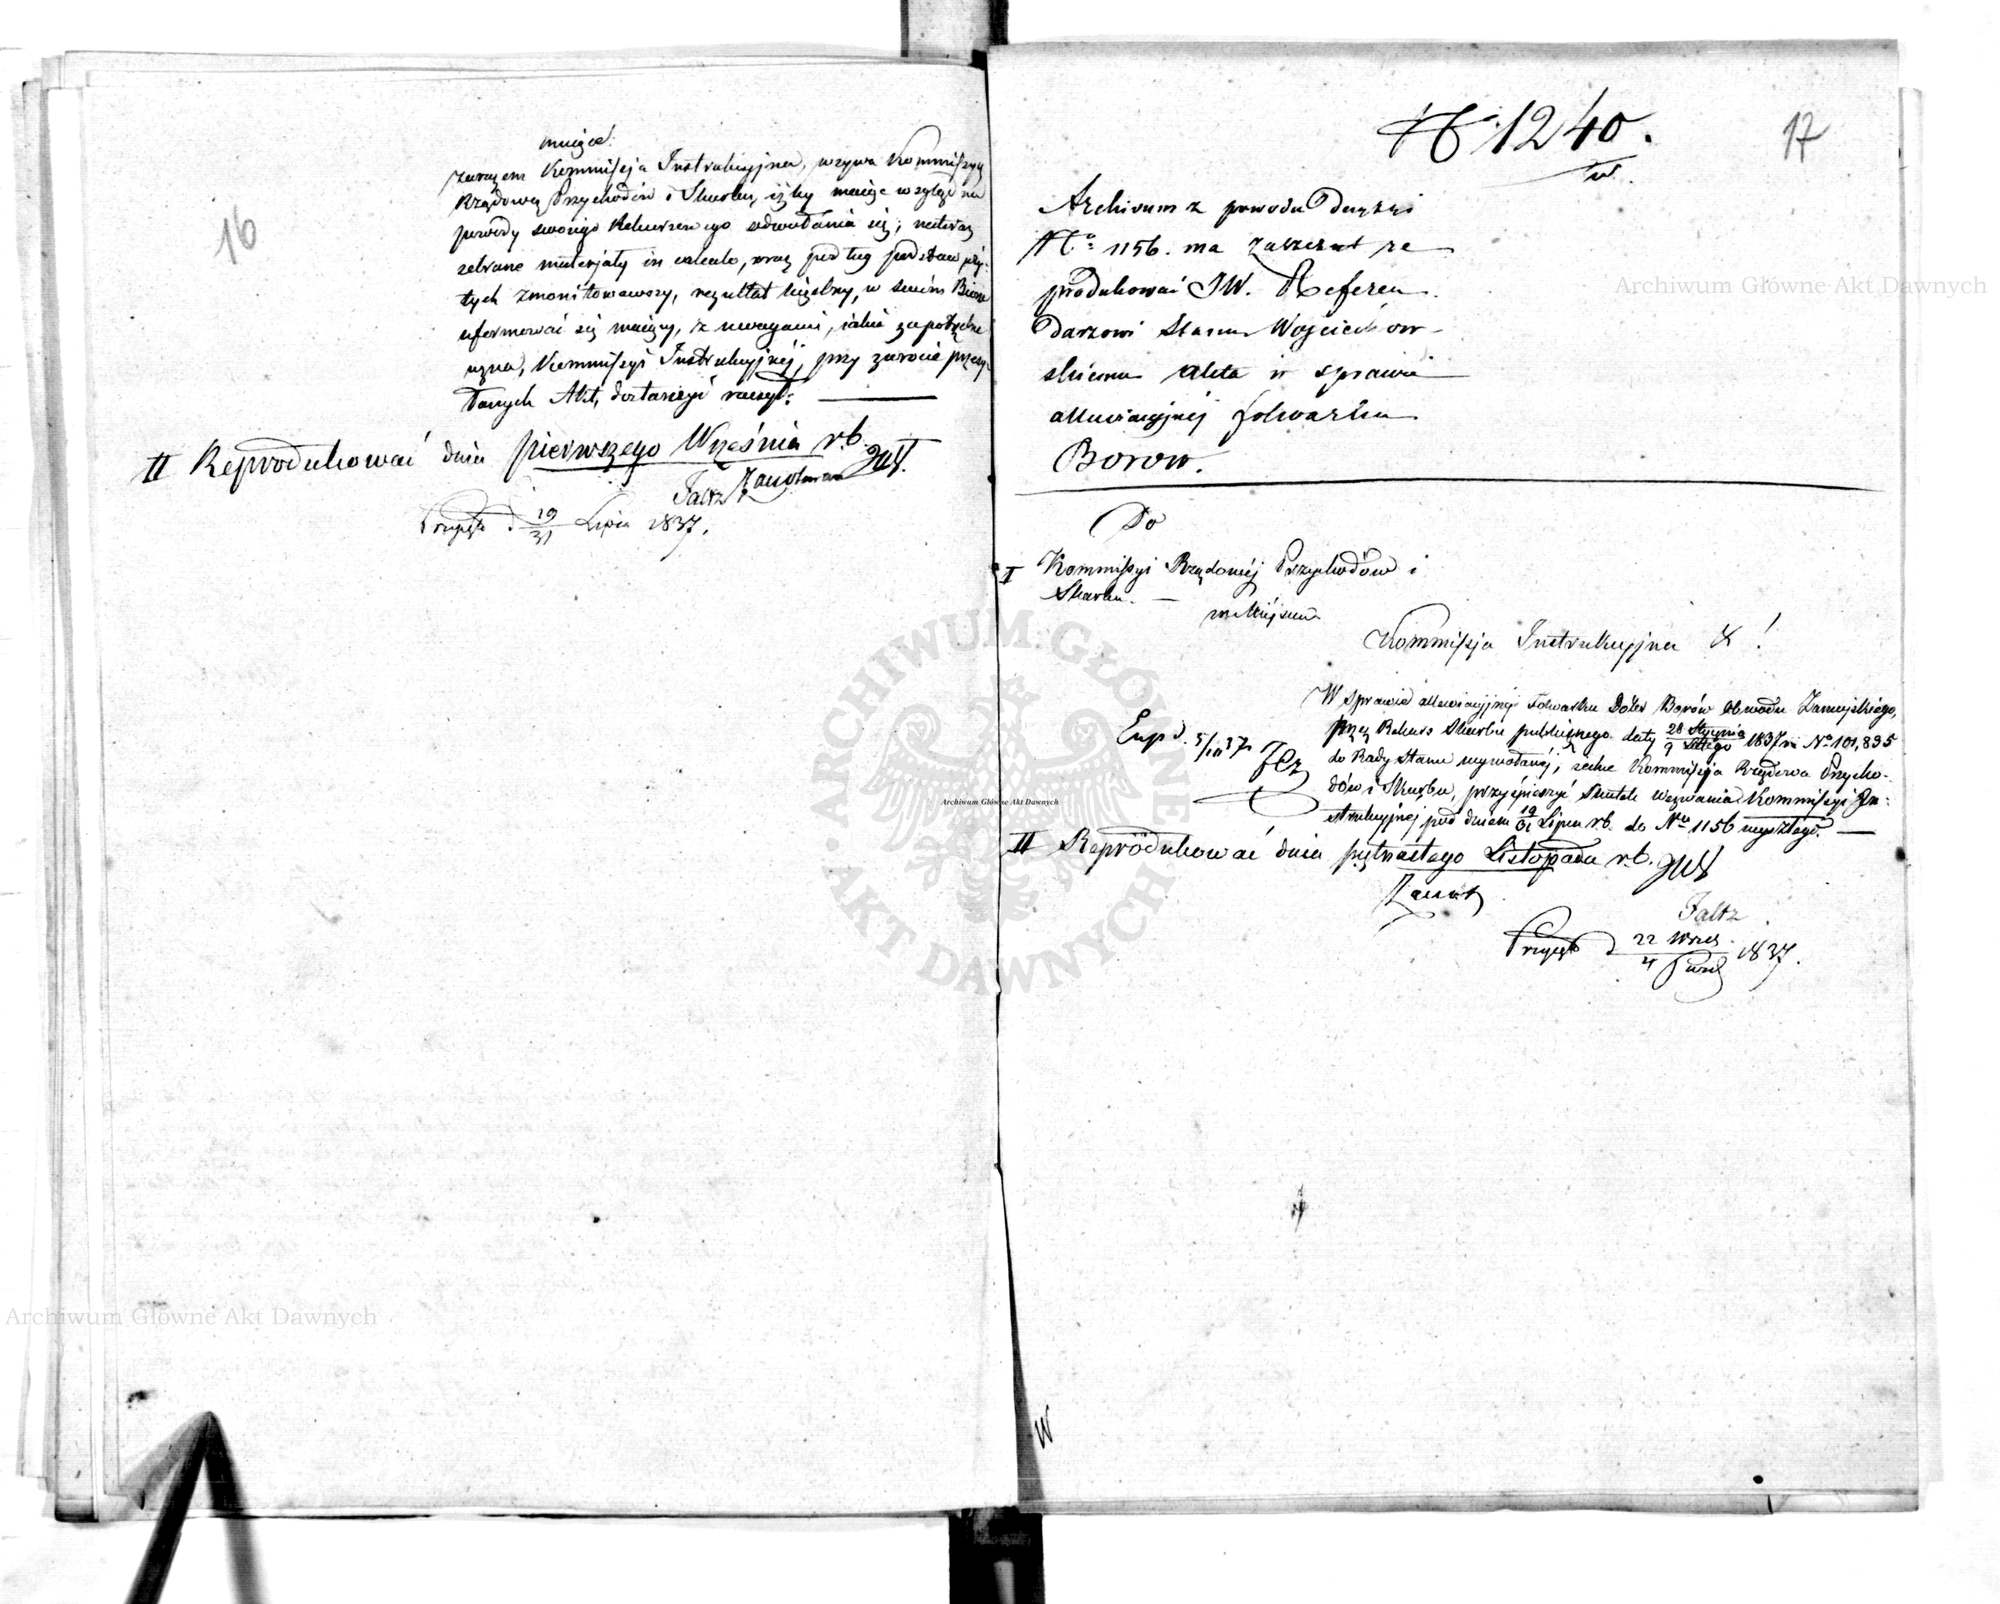 16
zarazem Kommissja Instrukcyjna, wzywa Kommissyą
Rządową Przychodów i Skarbu, iżby mając wzgląd na
powody swojego Rekursem odwołania się; neteraz
zebrane materjały in calculo, oraz podług podstaw przy-
tych zmonitowawszy, rezultat liczebny, w swém Biórze
uformować się mający, z uwagami, jakie za potrzebne
uzna, Kommissyi Instrukcyjnéj, przy zwrocie przesy-
łanych Akt, dostarczyć raczył.
II Reprodukować dnia pierwszego Września r.b.
Faltz
Przyjęto d 19/31 Lipca 1837.
17
N 1240.
Archivum z powodu Decyzyi
No 1156. ma zaszczyt re
produkować JW. Referen
darzowi Stanu Wojciechow
skiemu akta w sprawie
alluwiacyjnéj folwarku
Borow.
Do
I Kommissyi Rządowéj Przychodów i
Skarbu.
w Miejscu
Kommissja Instrukcyjna &!
W sprawie alluwiacyjnéj Folwarku Dóbr Borów Obwodu Zamojskiego,
przez Rekurs Skarbu publicznego daty 28 Stycznia/9 Lutego 1837 r. No 101,835
do Rady Stanu wywołanéj, zechce Kommissja Rządowa Przycho-
dów i Skarbu, przyśpieszyć skutek wezwania Kommissyi In-
strukcyjnéj pod dniem 19/31 Lipca r.b. do No 1156 wyszłego.
Exp d. 5/10 37
II Reprodukować dnia piętnastego Listopada r.b.
Faltz
Przyjęto d 22 Wrześ./4 Paźd 1837.
W
Archiwum Główne Akt Dawnych
Archiwum Główne Akt Dawnych
Archiwum Główne Akt Dawnych
ARCHIWUM GŁÓWNE AKT DAWNYCH